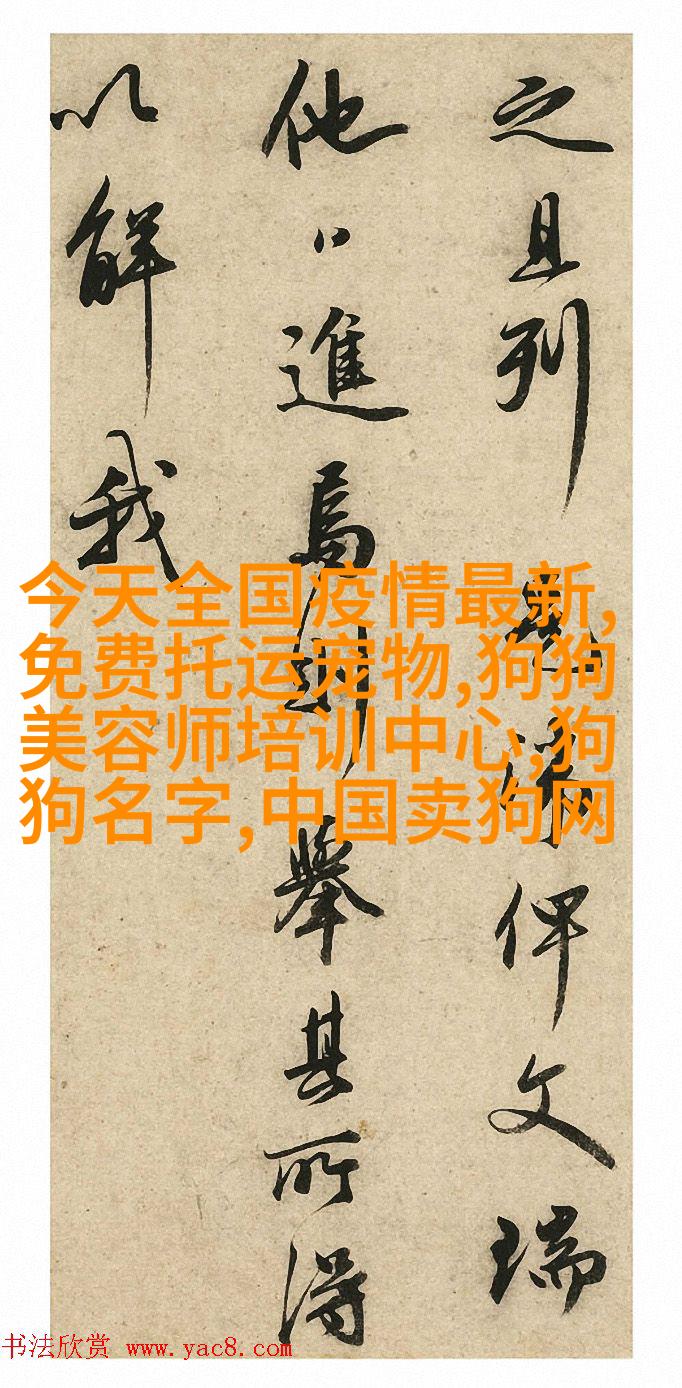 之且列
俾文瑞
他〻進焉則舉其所得
以解我
今天全国疫情最新,
免费托运宠物,狗狗
美容师培训中心,狗
狗名字,中国卖狗网
书法欣赏 www.yac8.com